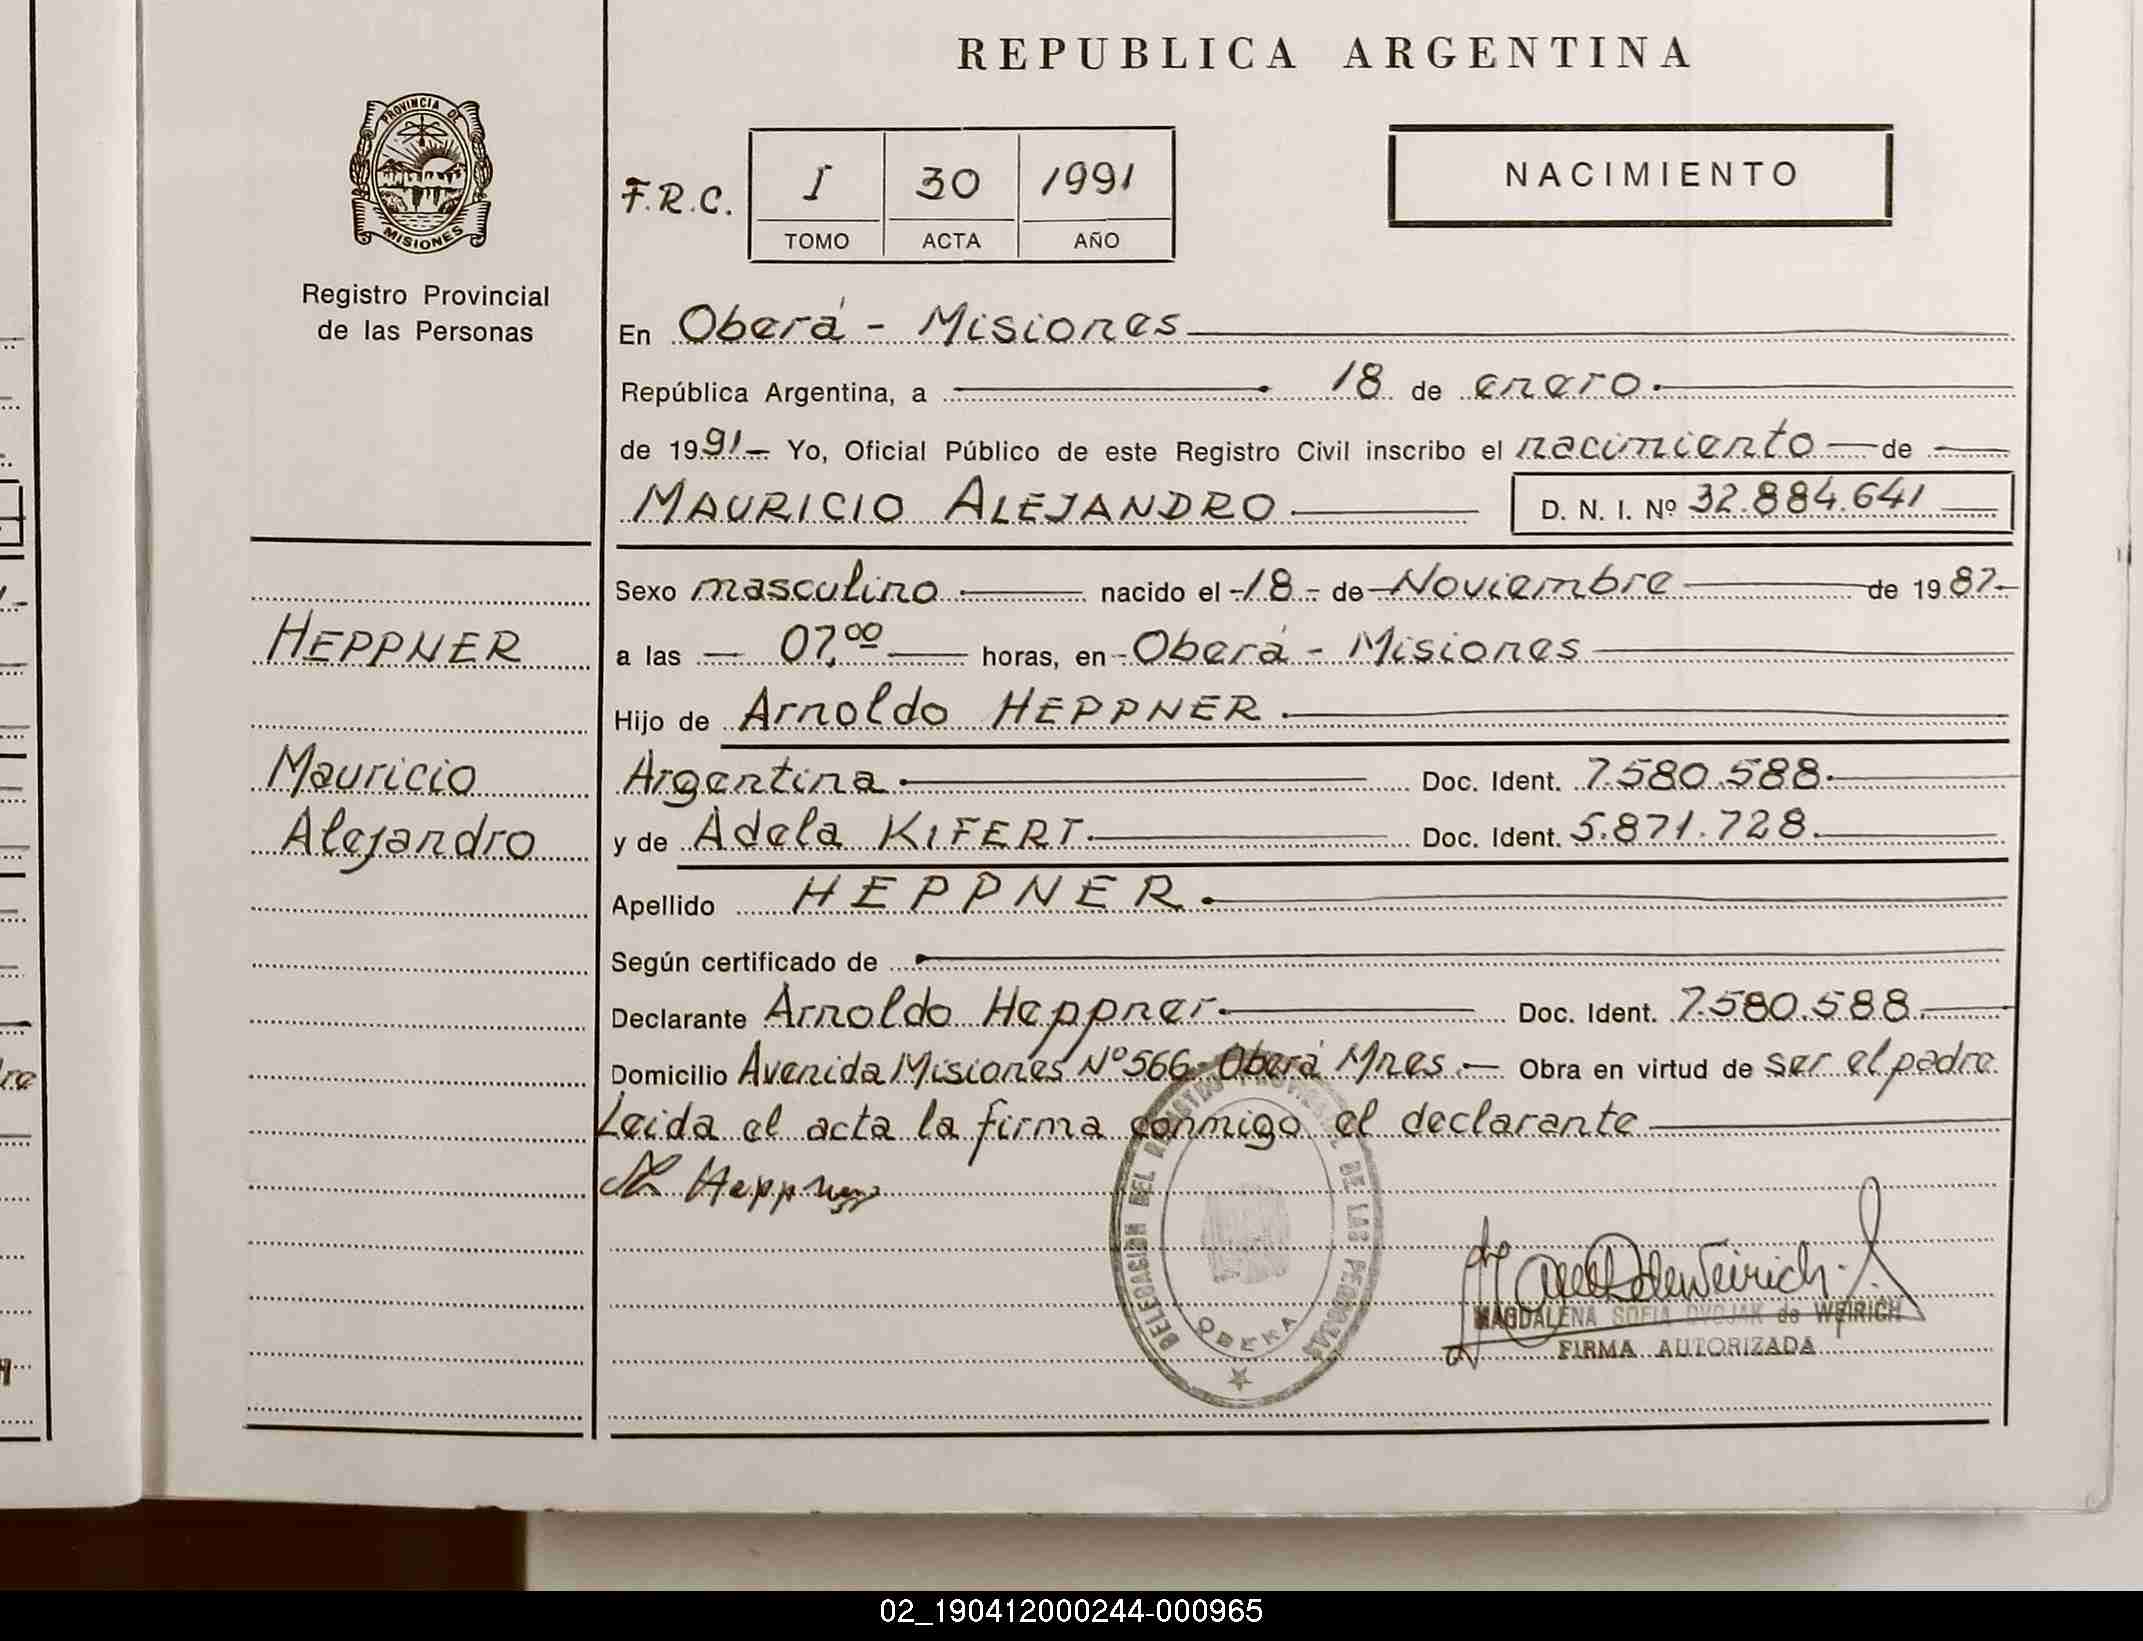 REPUBLICA ARGENTINA
PROVINCIA DE
MISIONES
Registro Provincial
de las Personas
F.R.C. I 30 1991
TOMO ACTA AÑO
NACIMIENTO
En Oberá - Misiones
República Argentina, a 18 de enero
de 1991- Yo, Oficial Público de este Registro Civil inscribo el nacimiento de
MAURICIO ALEJANDRO D. N. I. Nº 32.884.641
Sexo masculino nacido el -18- de Noviembre de 1987-
HEPPNER
a las 07,00 horas, en Oberá - Misiones
Hijo de Arnoldo HEPPNER
Mauricio
Argentina Doc. Ident. 7.580.588
Alejandro
y de Adela KIFERT Doc. Ident. 5.871.728
Apellido HEPPNER
Según certificado de
Declarante Arnoldo Heppner Doc. Ident. 7.580.588
Domicilio Avenida Misiones Nº 566 - Oberá Mnes. Obra en virtud de ser el padre
Leida el acta la firma conmigo el declarante
Heppner
DELEGACION DEL REGISTRO PROVINCIAL DE LAS PERSONAS
OBERA
MAGDALENA SOFIA DVOJAK de WEIRICH
FIRMA AUTORIZADA
02_190412000244-000965